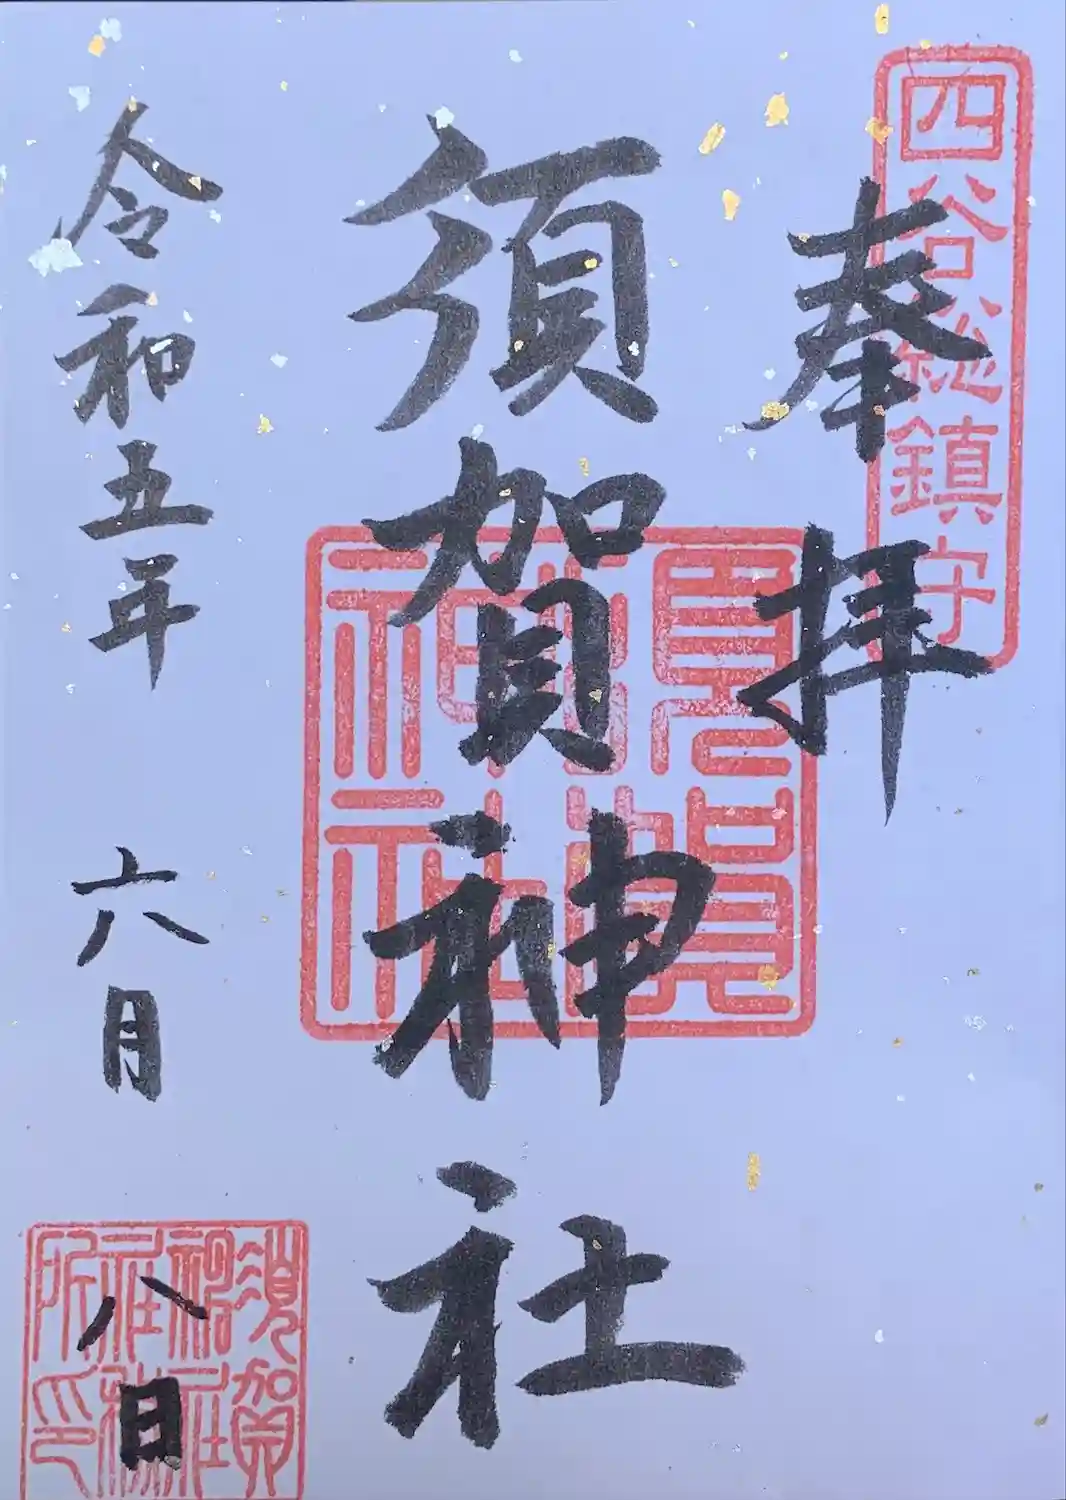 四谷総鎮守
奉拝
須賀神社
須賀神社
令和五年 六月 八日
須賀神社社務所印